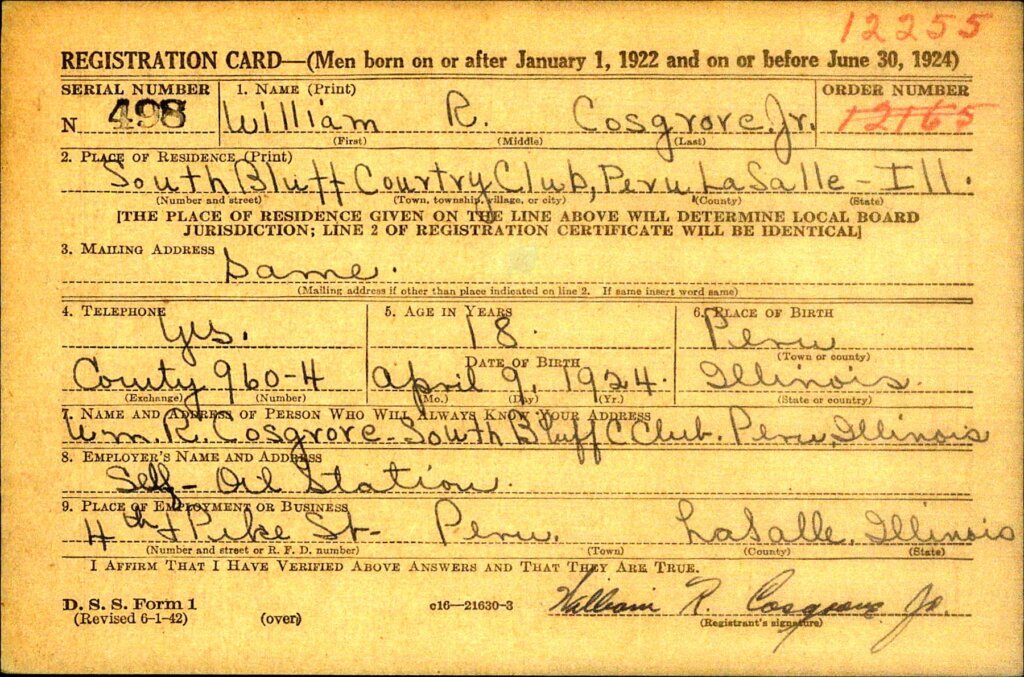 12255
REGISTRATION CARD—(Men born on or after January 1, 1922 and on or before June 30, 1924)
SERIAL NUMBER 1. NAME (Print) ORDER NUMBER
N 498 William R. Cosgrove. Jr. 12165
(First) (Middle) (Last)
2. PLACE OF RESIDENCE (Print)
South Bluff Courtry Club, Peru LaSalle - Ill.
(Number and street) (Town, township, village, or city) (County) (State)
[THE PLACE OF RESIDENCE GIVEN ON THE LINE ABOVE WILL DETERMINE LOCAL BOARD
JURISDICTION; LINE 2 OF REGISTRATION CERTIFICATE WILL BE IDENTICAL]
3. MAILING ADDRESS
Same.
(Mailing address if other than place indicated on line 2. If same insert word same)
4. TELEPHONE 5. AGE IN YEARS 6. PLACE OF BIRTH
Yes. 18. Peru
DATE OF BIRTH (Town or county)
County 960-4 April 9, 1924. Illinois.
(Exchange) (Number) (Mo.) (Day) (Yr.) (State or country)
7. NAME AND ADDRESS OF PERSON WHO WILL ALWAYS KNOW YOUR ADDRESS
Wm. R. Cosgrove - South Bluff C Club. Peru, Illinois
8. EMPLOYER'S NAME AND ADDRESS
Self - Oil Station.
9. PLACE OF EMPLOYMENT OR BUSINESS
4th + Pike St - Peru. LaSalle, Illinois
(Number and street or R. F. D. number) (Town) (County) (State)
I AFFIRM THAT I HAVE VERIFIED ABOVE ANSWERS AND THAT THEY ARE TRUE.
D. S. S. Form 1 c16—21630-3 William R. Cosgrove Jr.
(Revised 6-1-42) (over) (Registrant's signature)